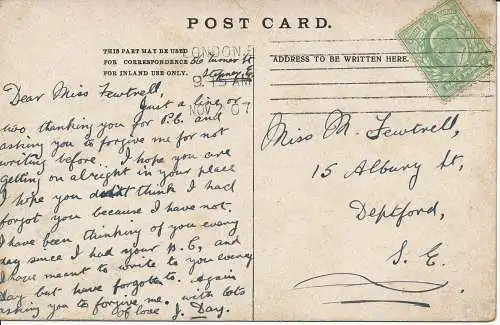 POST CARD.
THIS PART MAY BE USED
FOR CORRESPONDENCE
FOR INLAND USE ONLY.
ADDRESS TO BE WRITTEN HERE.
LONDON E
9.15 AM
NOV 07
36 Turner St
Stepney E
Dear Miss Fewtrell,
Just a line or
two, thanking you for P.C. and
asking you to forgive me for not
writing before. I hope you are
getting on alright in your place
I hope you didn't think I had
forgot you because I have not.
I have been thinking of you every
day since I had your P.C, and
I have meant to write to you every
Day but have forgotten to. Again
asking you to forgive me. with lots
of love. J. Day.
Miss M. Fewtrell,
15 Albury St,
Deptford,
S. E.